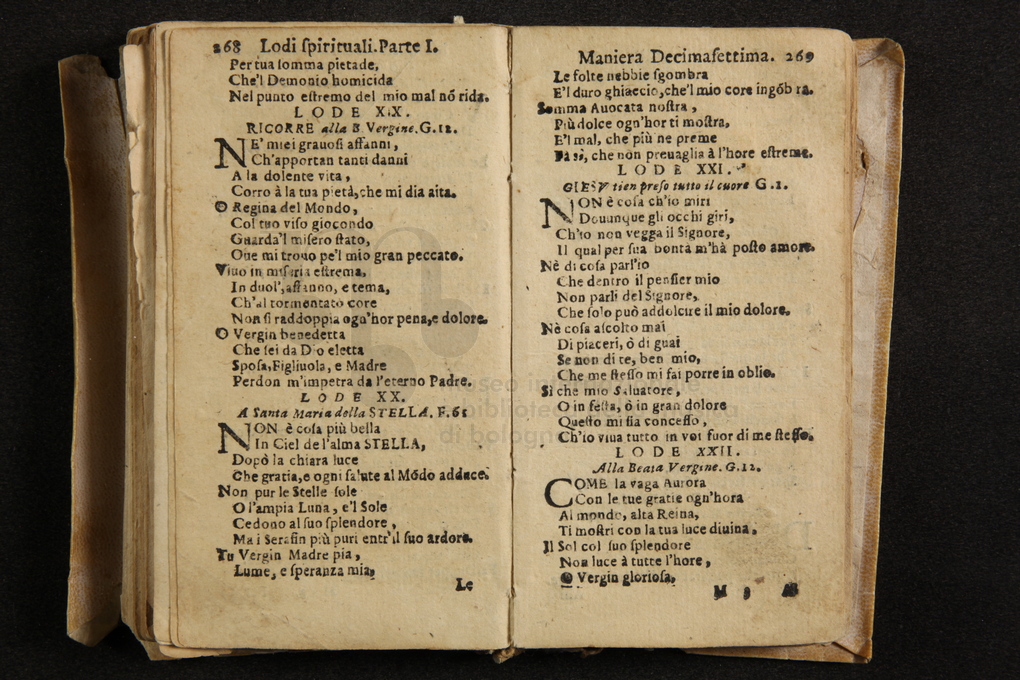 268 Lodi ſpirituali. Parte I.
Per tua ſomma pietade,
Che'l Demonio homicida
Nel punto eſtremo del mio mal nō rida.
LODE XIX.
RICORRE alla B. Vergine. G. 12.
NE' miei grauoſi affanni,
Ch'apportan tanti danni
A la dolente vita,
Corro à la tua pietà, che mi dia aita.
O Regina del Mondo,
Col tuo viſo giocondo
Guarda'l miſero ſtato,
Oue mi trouo pe'l mio gran peccato.
Viuo in miſeria eſtrema,
In duol', affanno, e tema,
Ch'al tormentato core
Non ſi raddoppia ogn'hor pena, e dolore.
O Vergin benedetta
Che ſei da Dio eletta
Spoſa, Figliuola, e Madre
Perdon m'impetra da l'eterno Padre.
LODE XX.
A Santa Maria della STELLA. F. 61
NON è coſa più bella
In Ciel de l'alma STELLA,
Dopò la chiara luce
Che gratia, e ogni ſalute al Mōdo adduce.
Non pur le Stelle ſole
O l'ampia Luna, e'l Sole
Cedono al ſuo ſplendore,
Ma i Serafin più puri entr'il ſuo ardore.
Tu Vergin Madre pia,
Lume, e ſperanza mia,
Le
Maniera Decimaſettima. 269
Le folte nebbie ſgombra
E'l duro ghiaccio, che'l mio core ingōbra.
Somma Auocata noſtra,
Più dolce ogn'hor ti moſtra,
E'l mal, che più ne preme
Fa sì, che non preuaglia à l'hore eſtreme.
LODE XXI.
GIESV tien preſo tutto il cuore G. 1.
NON è coſa ch'io miri
Douunque gli occhi giri,
Ch'io non vegga il Signore,
Il qual per ſua bontà m'hà poſto amore.
Nè di coſa parl'io
Che dentro il penſier mio
Non parli del Signore,
Che ſolo può addolcire il mio dolore.
Nè coſa aſcolto mai
Di piaceri, ò di guai
Se non di te, ben mio,
Che me ſteſſo mi fai porre in oblio.
Sì che mio Saluatore,
O in feſta, ò in gran dolore
Queſto mi ſia conceſſo,
Ch'io viua tutto in voi fuor di me ſteſſo.
LODE XXII.
Alla Beata Vergine. G. 12.
COME la vaga Aurora
Con le tue gratie ogn'hora
Al mondo, alta Reina,
Ti moſtri con la tua luce diuina,
Il Sol col ſuo ſplendore
Non luce à tutte l'hore,
O Vergin glorioſa,
M 3